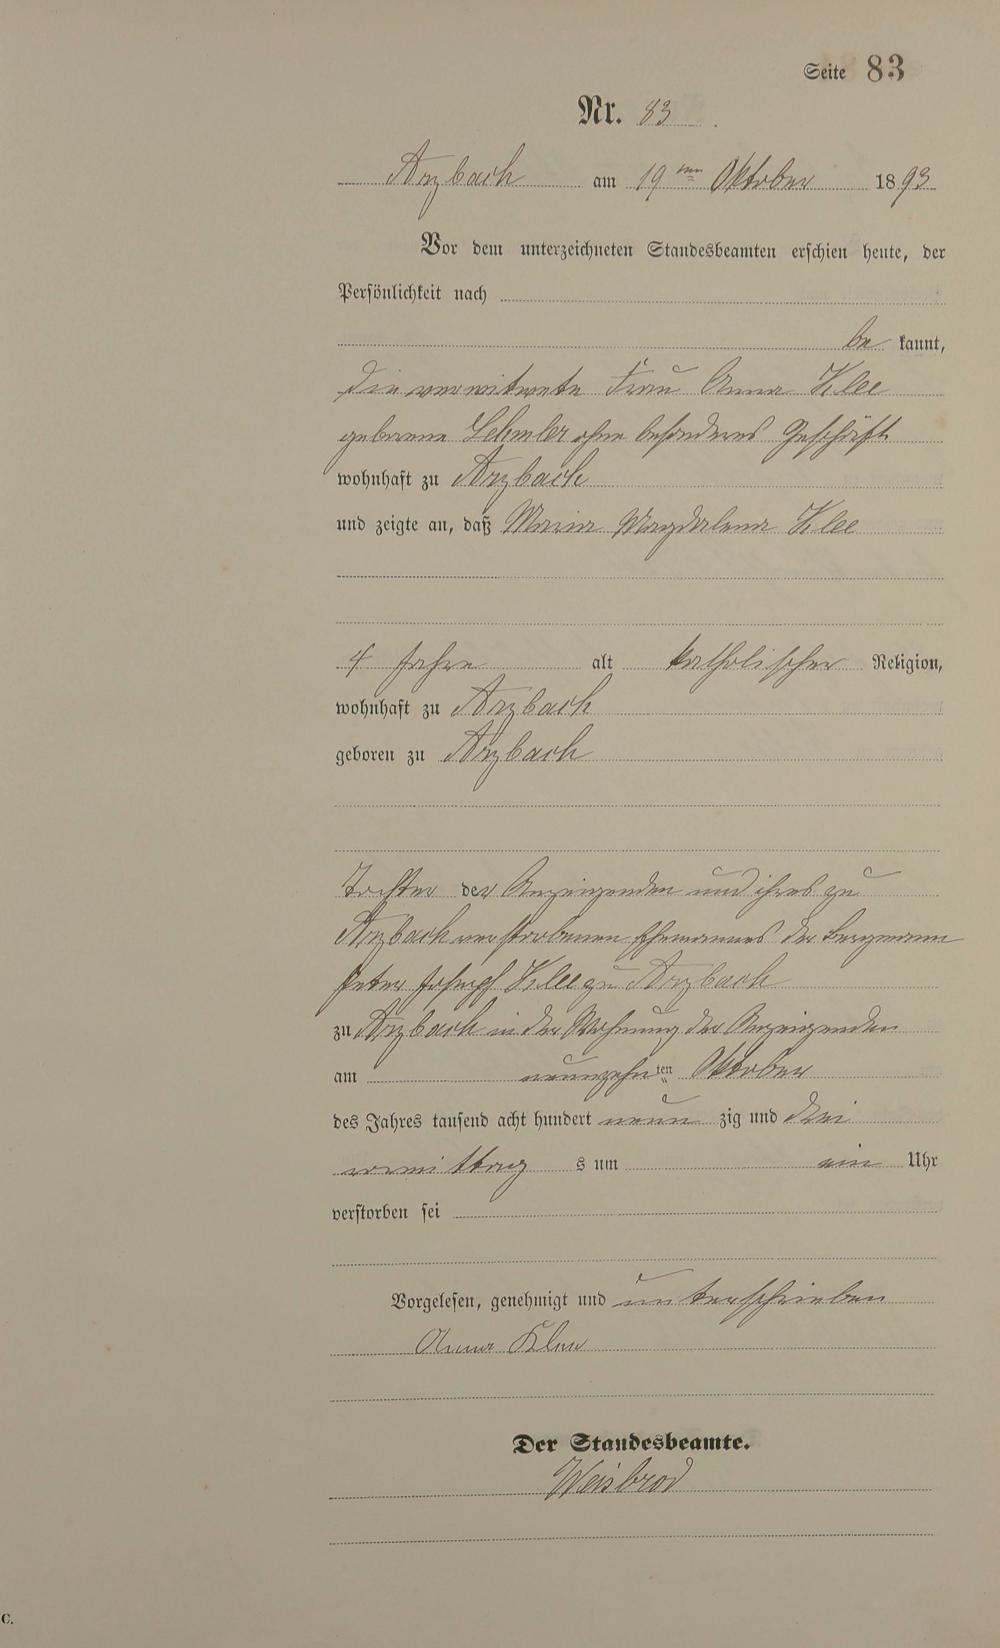 Seite 83
Nr. 83.
Arzbach am 19ten Oktober 1893
Vor dem unterzeichneten Standesbeamten erschien heute, der
Persönlichkeit nach
bekannt,
die verwitwete Frau Anna Klee
geborene Lehmler ohne besonderes Geschäft
wohnhaft zu Arzbach
und zeigte an, daß Maria Magdalena Klee
4 Jahre alt katholischer Religion,
wohnhaft zu Arzbach
geboren zu Arzbach
Tochter der Anzeigenden und ihres zu
Arzbach verstorbenen Ehemannes der Bergmann
Peter Joseph Klee zu Arzbach
zu Arzbach in der Wohnung der Anzeigenden
am neunzehnten Oktober
des Jahres tausend acht hundert neunzig und drei
vormittags um ein Uhr
verstorben sei
Vorgelesen, genehmigt und unterschrieben
Anna Klee
Der Standesbeamte.
Weisbrod
C.